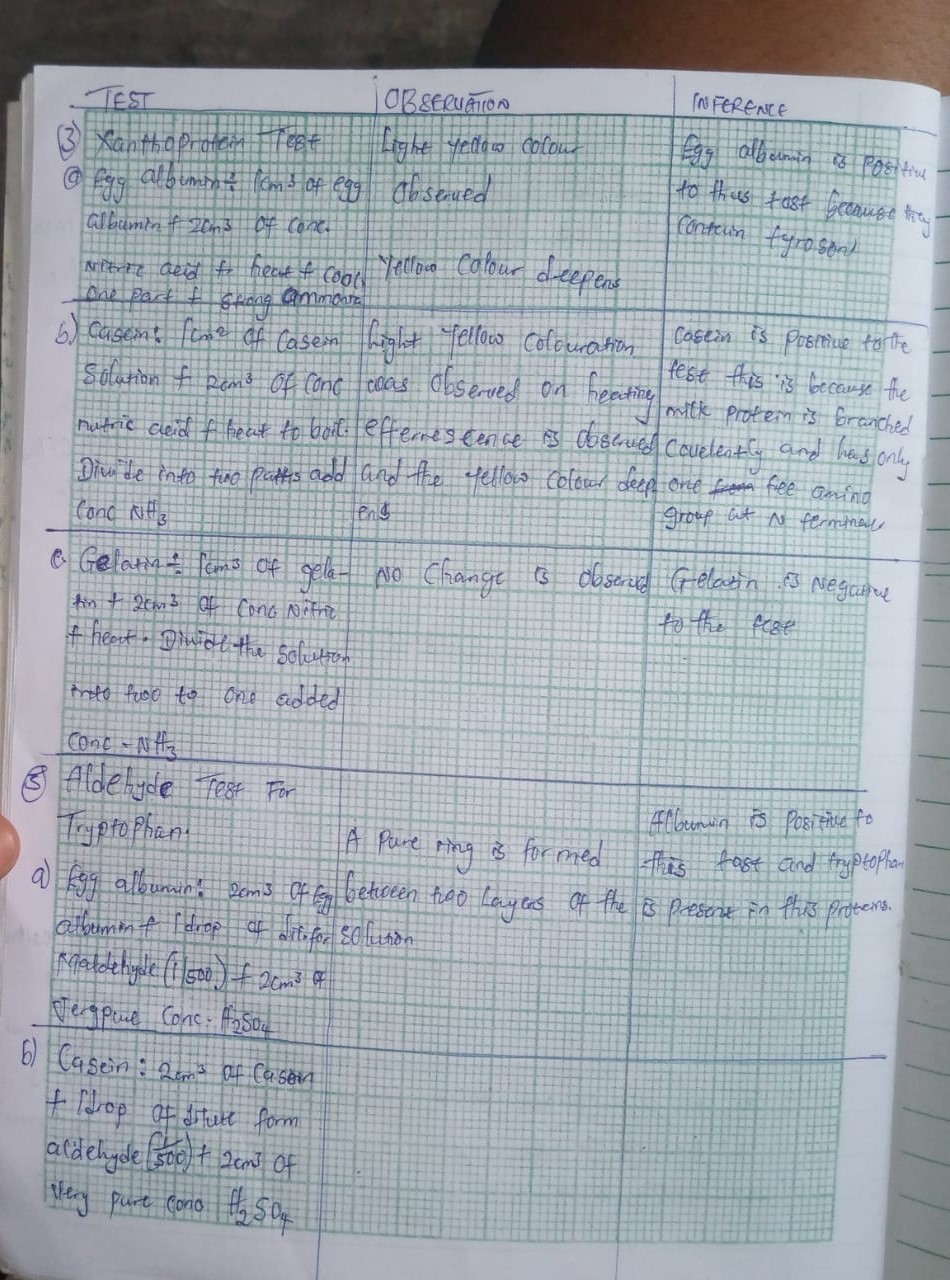 TEST OBSERVATION INFERENCE
(3) Xanthoprotein Test
(a) Egg albumin÷ 1cm3 of egg
albumin + 2cm3 of conc.
Nitric acid + heat + cool
one part + strong ammonia
Light yellow colour
observed
Yellow colour deepens
Egg albumin is positive
to this test because they
contain
b) Casein: 1cm2 of Casein
solution + 2cm3 of conc
nitric acid + heat to boil.
Divide into two parts add
Conc NH3
Light Yellow Colouration
was observed on heating
efferrescence is observed
and the yellow colour deep
ens
Casein is positive to the
test this is because the
milk protein is branched
Covelently and has only
one fee amino
group at N terminal
c. Gelatin÷ 1cm3 of gela-
tin + 2cm3 of conc Nitric
+ heat. Divide the solution
into two to one added
Conc - NH3
NO Change is observed
Gelatin is Negative
to the test
(5) Aldehyde Test For
Tryptophan.
a) Egg albumin: 2cm3 of Egg
albumin + 1drop of
(1/500) + 2cm3 of
Conc. H2SO4
A Pure ring is formed
between two layers of the
solution
Albumin is positive to
this test and tryptophan
is present in this proteins.
b) Casein: 2cm3 of Casein
+ 1drop of dilute form
aldehyde (1/500) + 2cm3 of
Very pure conc H2SO4